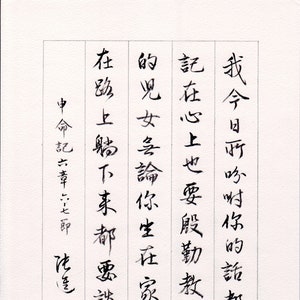 我今日所吩咐你的話都
記在心上也要殷勤教
的兒女無論你坐在家
在路上躺下来都要談
申命記六章六~七節